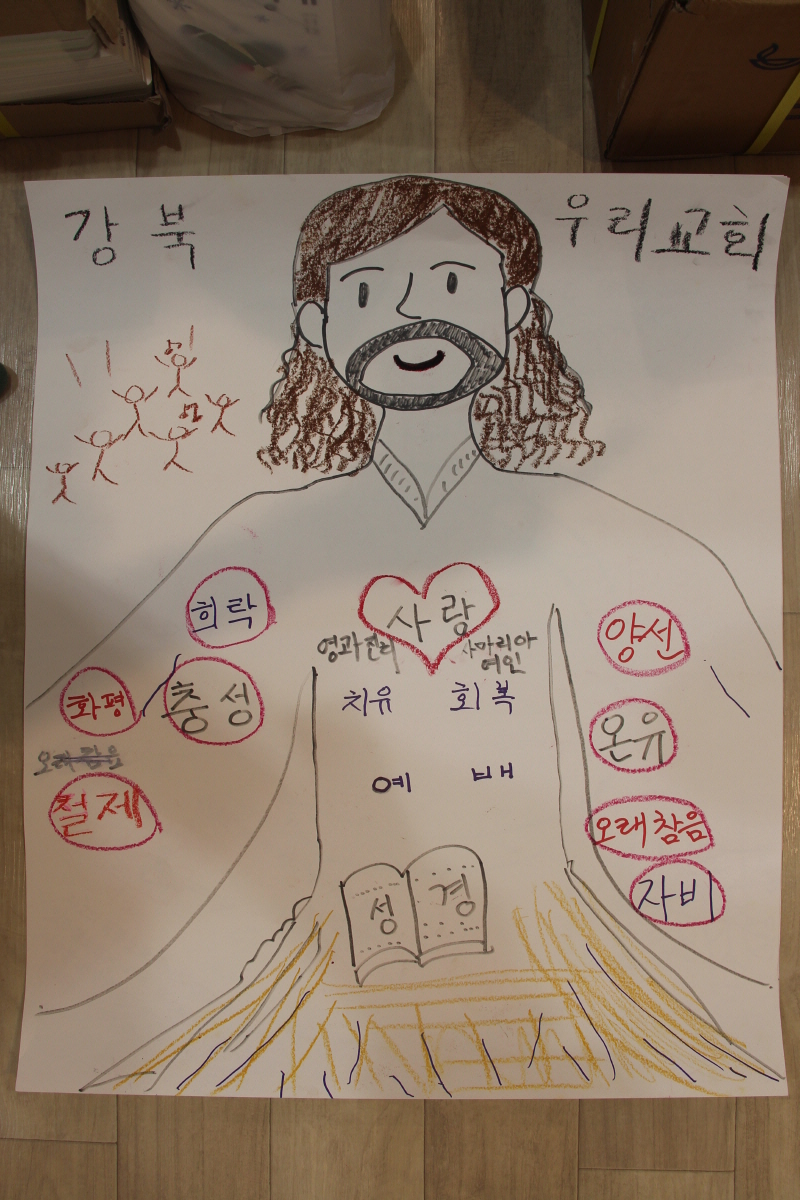 강북 우리교회
희락
사랑
양선
영과 진리
사마리아
여인
화평
충성
치유 회복
온유
오래 참음
절제
예 배
오래 참음
자비
성경